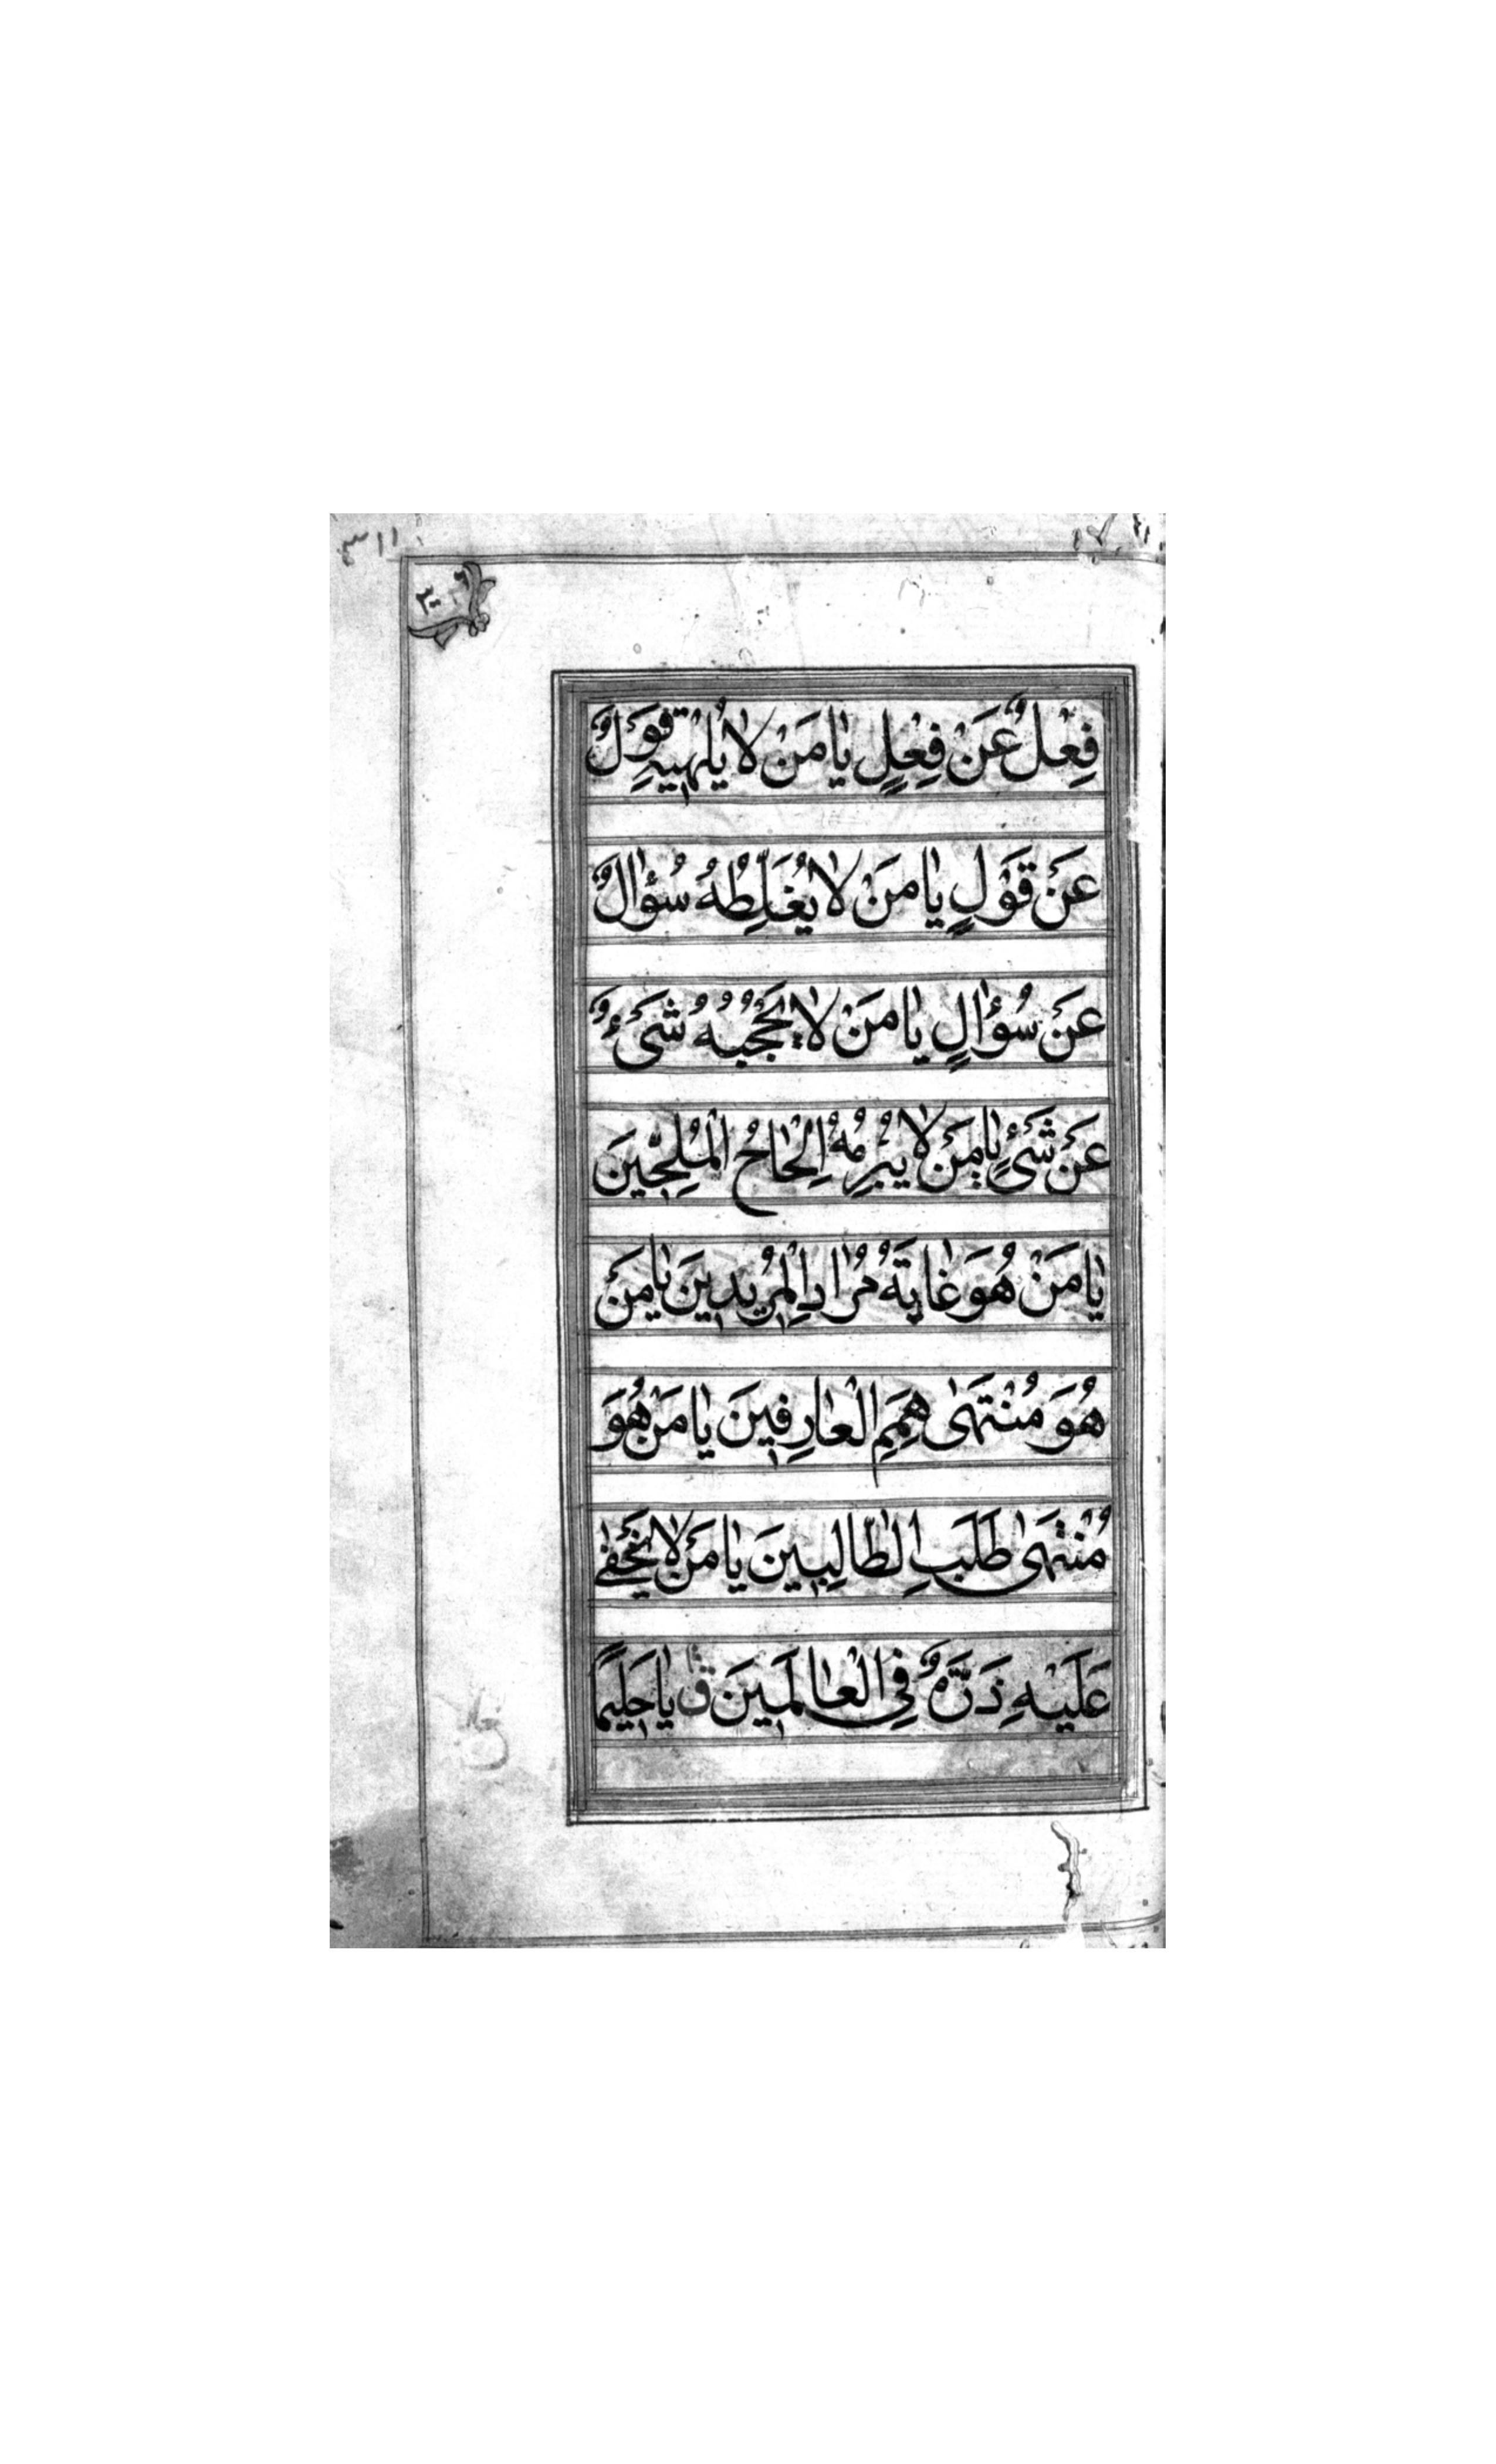 فِعْلٌ عَنْ فِعْلٍ يٰا مَنْ لٰا يُلْهيهِ قَوْلٌ
عَنْ قَوْلٍ يٰا مَنْ لٰا يُغَلِّطُهُ سُؤٰالٌ
عَنْ سُؤٰالٍ يٰا مَنْ لٰا يَحْجُبُهُ شَیْءٌ
عَنْ شَیْءٍ يٰا مَنْ لٰا يُبْرِمُهُ اِلْحٰاحُ الْمُلِحّينَ
يٰا مَنْ هُوَ غٰايَةُ مُرٰادِ الْمُريدينَ يٰا مَنْ
هُوَ مُنْتَهىٰ هِمَمِ الْعٰارِفينَ يٰا مَنْ هُوَ
مُنْتَهىٰ طَلَبِ الطّٰالِبينَ يٰا مَنْ لٰا يَخْفىٰ
عَلَيْهِ ذَرَّةٌ فِي الْعٰالَمينَ ق يٰا حَليمًا